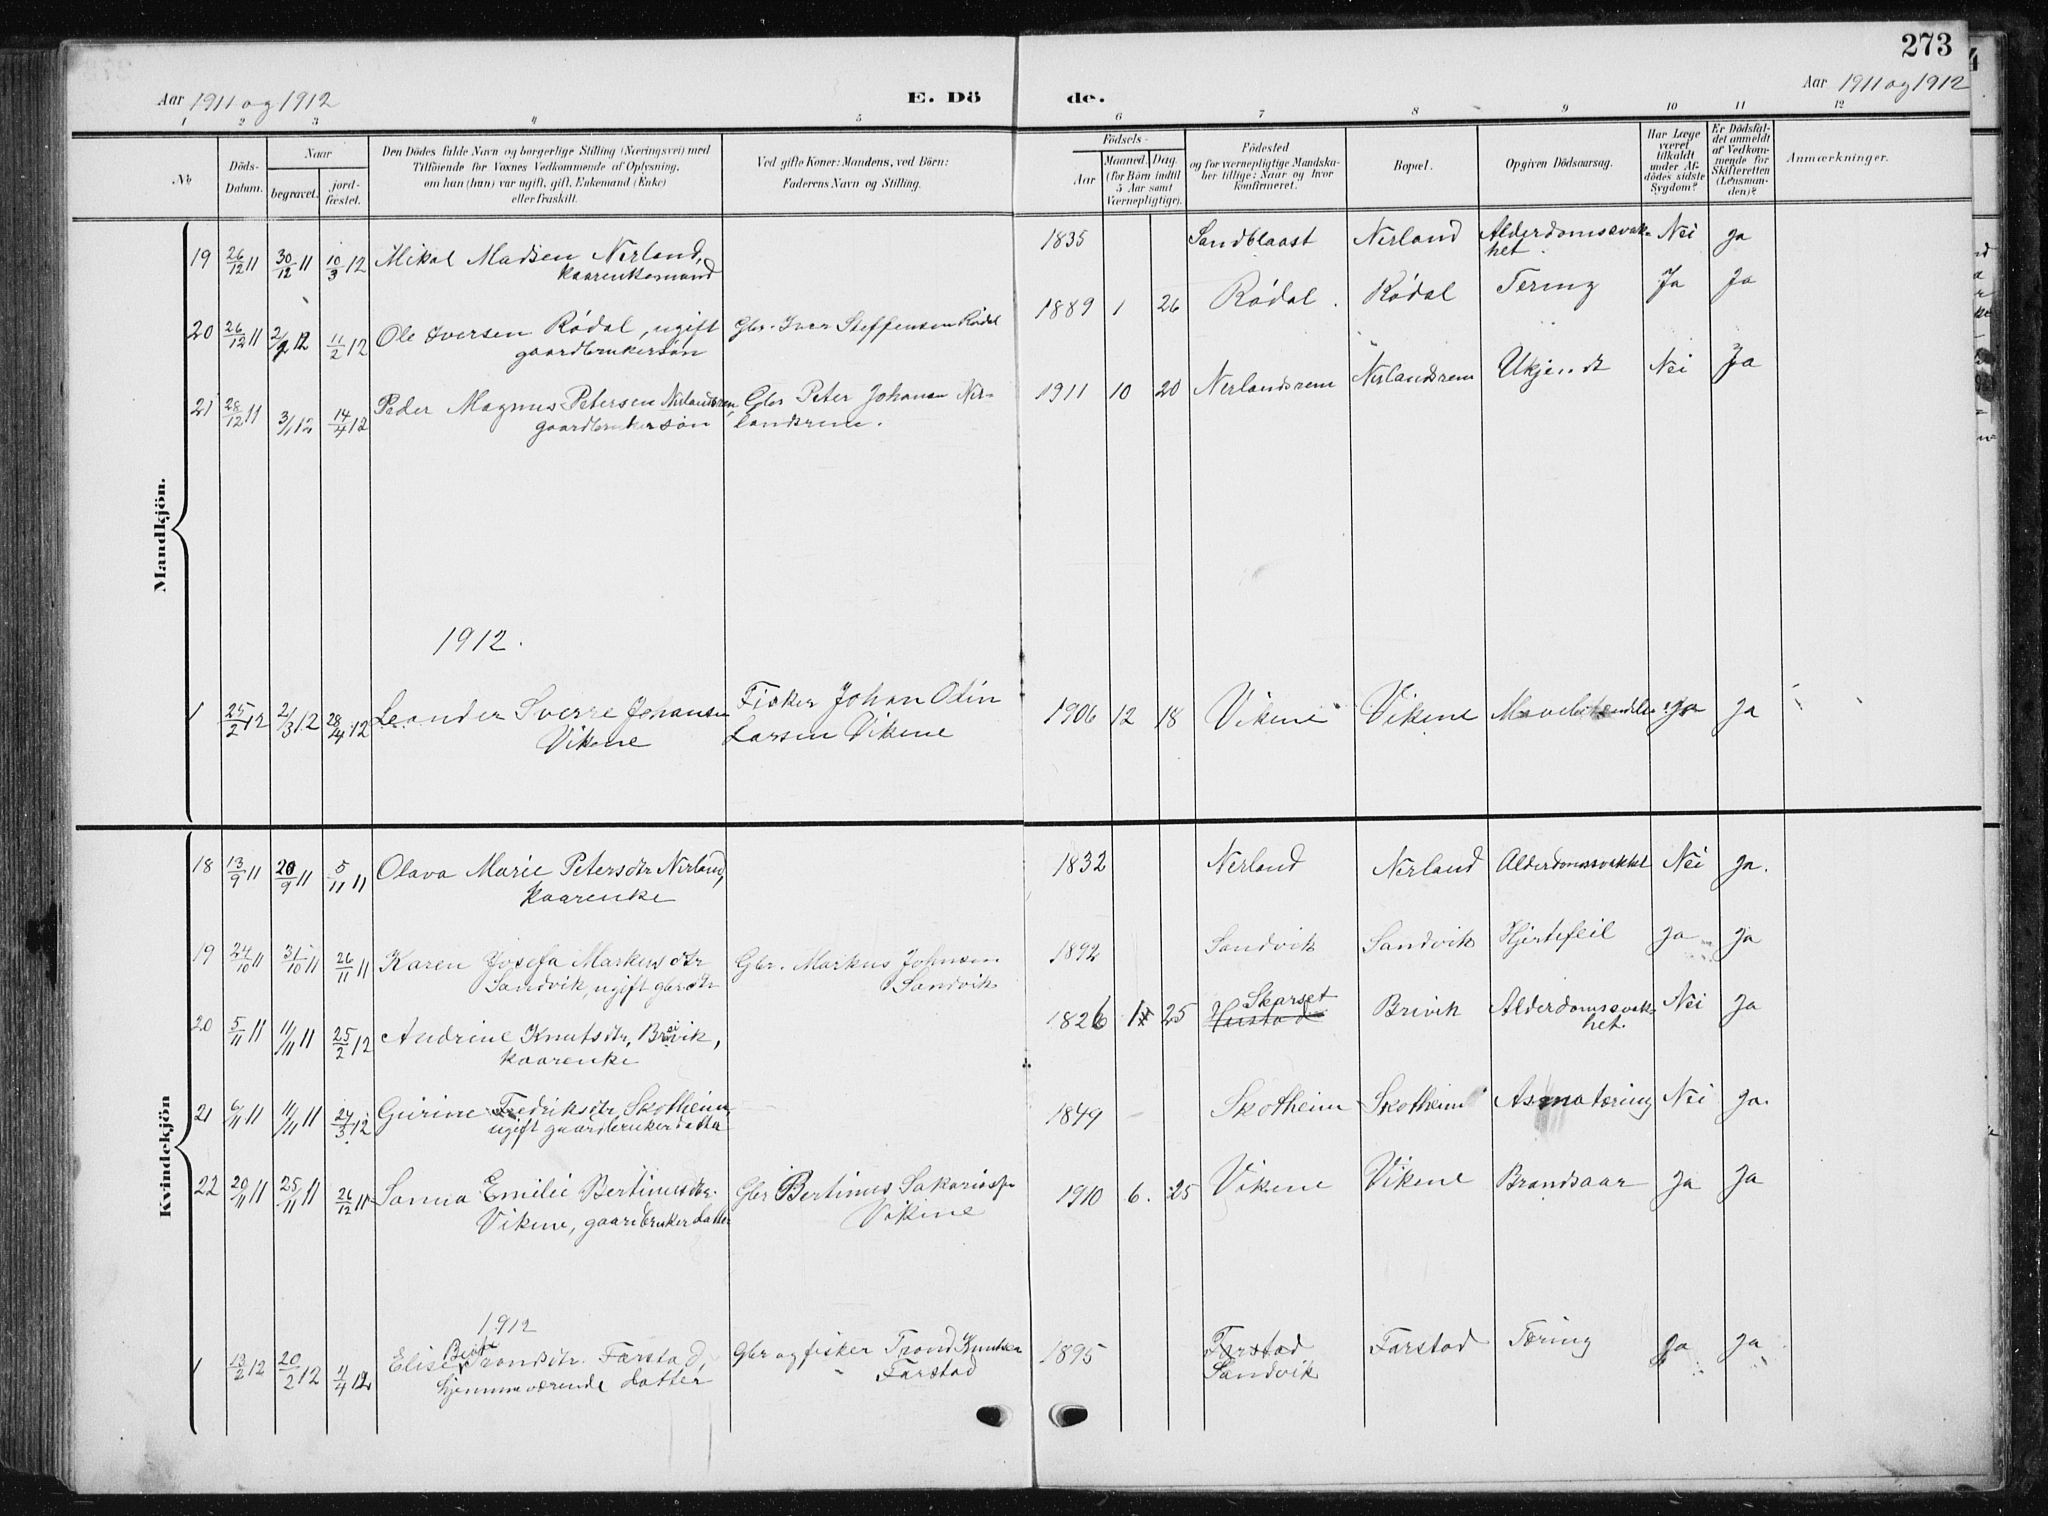 273
Aar 1911 og 1912
E. Dö
de.
Aar 1911 og 1912
1 2 3 4 5 6 7 8 9 10 11 12
No
Döds-Datum.
Naar
begravet.
jord-fæstet.
Den Dödes fulde Navn og borgerlige Stilling (Næringsvei) med
Tilföiende for Voxnes Vedkommende af Oplysning,
om han (hun) var ugift, gift, Enkemand (Enke)
eller fraskilt.
Ved gifte Koner: Mandens, ved Börn:
Faderens Navn og Stilling.
Födsels-
Aar
Maaned. (for Börn indtil 5 Aar samt Værnepligtige).
Dag.
Födested
og for værnepligtige Mandska-
ber tillige: Naar og hvor
konfirmeret.
Bopæl.
Opgiven Dödsaarsag.
Har Læge været tilkaldt under Afdödes sidste Sygdom?
Er Dödsfaldet anmeldt af Vedkommende for Skifteretten (Lensmanden)?
Anmærkninger.
Mandkjön.
19 26/12 11 30/12 11 10/3 12 Mikal Madsen Nerland, 1835 Sandblaast Nerland Alderdomssvak- Nei Ja
kaarenkemand het.
20 26/12 11 2/ 12 11/2 12 Ole Iversen Rödal, ugift Gbr. Iver Steffensen Rödal 1889 1 26 Rödal. Rödal Tæring Ja Ja
gaardbrukersön
21 28/12 11 3/1 12 14/4 12 Peder Magnus Petersen Nerlandsrem, Gbr Peter Johansen Ner- 1911 10 20 Nerlandsrem Nerlandsrem Ukjendt Nei Ja
gaardbrukersön landsrem.
1912.
1 25/2 12 2/3 12 28/4 12 Leander Sverre Johansen Fisker Johan Odin 1906 12 18 Vikene Vikene Ja Ja
Vikene Larsen Vikene
Kvindekjön
18 13/9 11 20/9 11 5/11 11 Olava Marie Petersdtr Nerland, 1832 Nerland Nerland Alderdomssvakhet Nei Ja.
kaarenke
19 24/10 11 31/10 11 26/11 11 Karen Josefa Markusdtr Gbr. Markus Johnsen 1892 Sandvik Sandvik Hjertefeil Ja Ja
Sandvik, ugift gbrdtr Sandvik
20 5/11 11 11/11 11 25/2 12 Andrine Knutsdtr, Brevik, 1826 25 Skarset Hustad Brivik Alderdomssvak- Nei Ja
kaarenke het.
21 6/11 11 11/11 11 24/3 12 Gurine Fredriksdtr, Skotheim, 1849 Skotheim Skotheim Asmatæring Nei Ja.
ugift gaardbrukerdatter
22 20/11 11 25/11 11 26/12 11 Sanna Emilie Bertinusdtr. Gbr Bertinus Sakarias 1910 6. 25 Vikene Vikene Brandsaar Ja Ja
Vikene, gaardbrukerdatter Vikene
1912
1 13/2 12 20/2 12 11/4 12 Elise Trondsdtr. Farstad, Gbr og fisker Trond Knutsen 1895 Farstad Farstad Tæring Ja Ja
hjemmeværende datter Farstad Sandvik